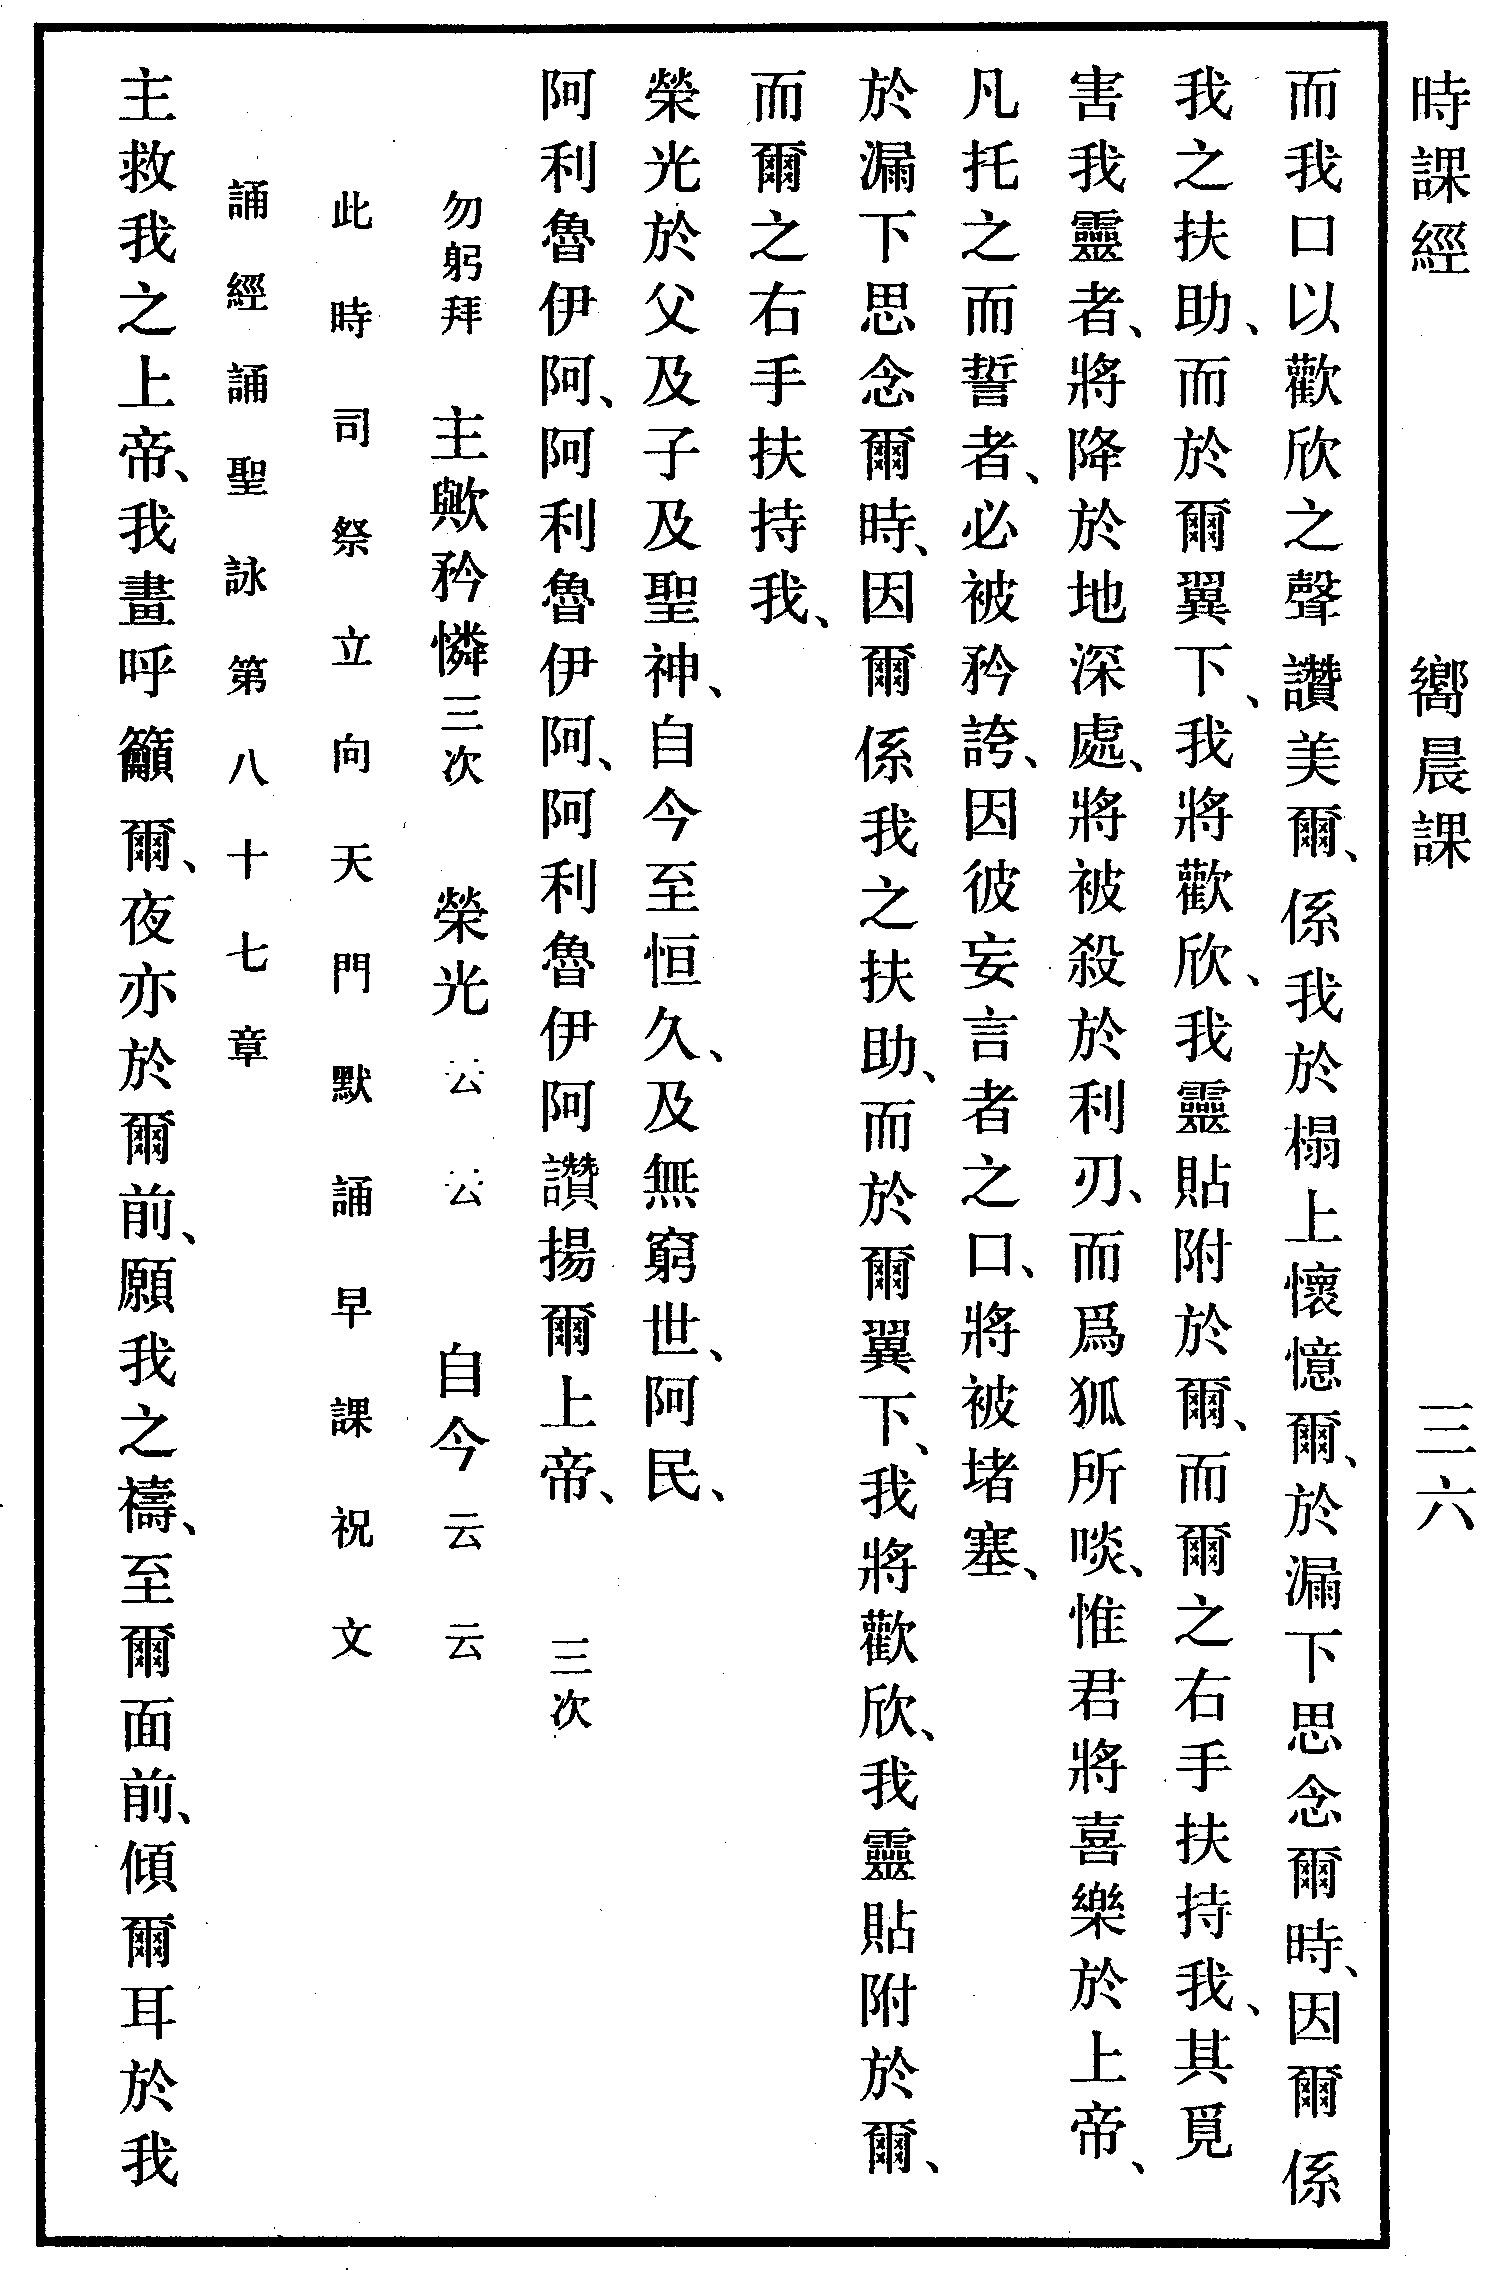 時課經 嚮晨課 三六
而我口以歡欣之聲讚美爾、係我於榻上懷憶爾、於漏下思念爾時、因爾係
我之扶助、而於爾翼下、我將歡欣、我靈貼附於爾、而爾之右手扶持我、其覓
害我靈者、將降於地深處、將被殺於利刃、而爲狐所啖、惟君將喜樂於上帝、
凡托之而誓者、必被矜誇、因彼妄言者之口、將被堵塞、
於漏下思念爾時、因爾係我之扶助、而於爾翼下、我將歡欣、我靈貼附於爾、
而爾之右手扶持我、
榮光於父及子及聖神、自今至恒久、及無窮世、阿民、
阿利魯伊阿、阿利魯伊阿、阿利魯伊阿讚揚爾上帝、 三次
勿躬拜 主歟矜憐三次 榮光云云 自今云云
此時司祭立向天門默誦早課祝文
誦經誦聖詠第八十七章
主救我之上帝、我晝呼籲爾、夜亦於爾前、願我之禱、至爾面前、傾爾耳於我